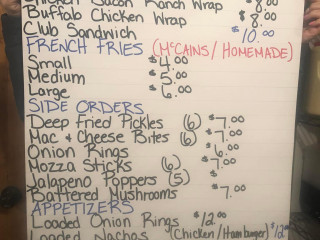 Chicken Bacon Ranch Wrap $8.00
Buffalo Chicken Wrap $8.00
Club Sandwich $10.00
FRENCH FRIES (McCAINS/HOMEMADE)
Small $4.00
Medium $5.00
Large $6.00
SIDE ORDERS
Deep Fried Pickles (6) $7.00
Mac & Cheese Bites (6) $7.00
Onion Rings $6.00
Mozza Sticks (6) $7.00
Jalapeno Poppers (5) $
Battered Mushrooms $7.00
APPETIZERS
Loaded Onion Rings $12.00
Loaded Nachos (Chicken/Hamburger) $12